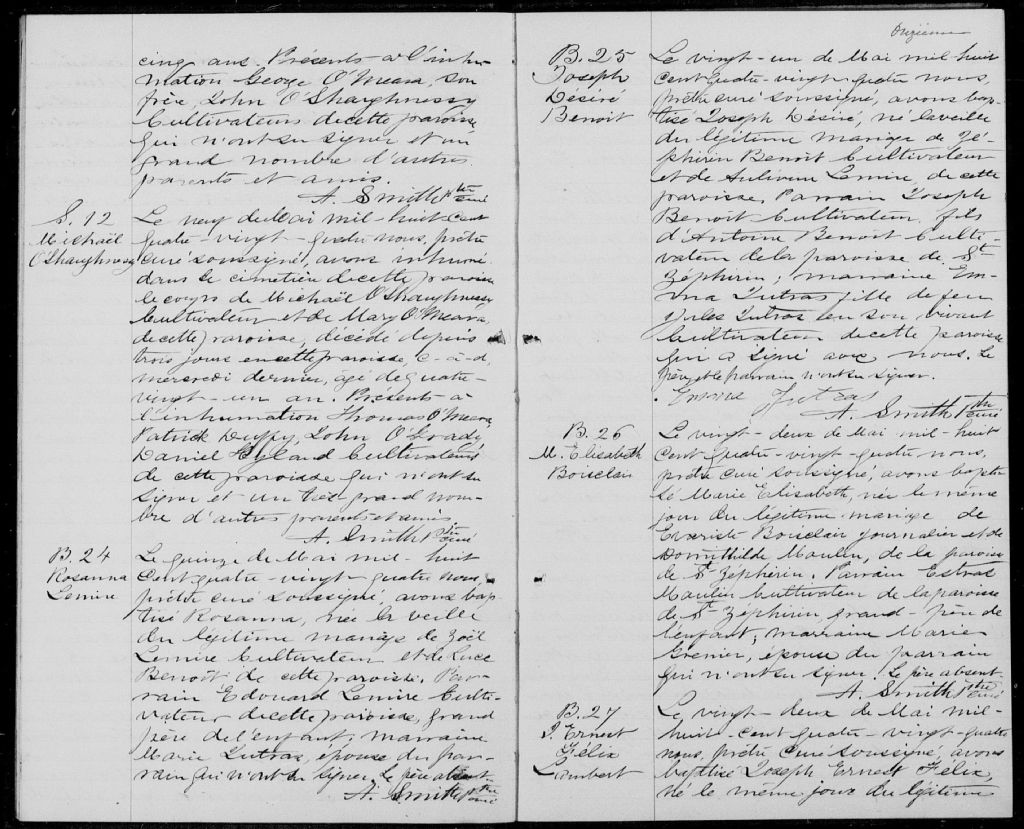 cinq ans. Présents à l'inhu-
mation George O'Meara, son
frère, John O'Shaughnessy
Cultivateurs de cette paroisse
qui n'ont su signer et un
grand nombre d'autres
parents et amis.
A. Smith Ptre curé
S. 12
Michaël
O'Shaughnessy
Le neuf de Mai mil-huit cent
quatre-vingt-quatre nous, prêtre
curé soussigné, avons inhumé
dans le cimetière de cette paroisse
le corps de Michaël O'Shaughnessy
Cultivateur et de Mary O'Meara,
de cette paroisse, décédé depuis
trois jours en cette paroisse, c-à-d,
mercredi dernier, âgé de quatre-
vingt-un an. Présents à
l'inhumation Thomas O'Meara,
Patrick Duffy, John O'Grady,
Daniel Hyland Cultivateurs
de cette paroisse qui n'ont su
signer et un très grand nom-
bre d'autres parents et amis
A. Smith Ptre curé
B. 24
Rosanna
Lemire
Le quinze de Mai mil-huit
cent quatre-vingt-quatre nous,
prêtre curé soussigné, avons bap-
tisé Rosanna, née la veille
du légitime mariage de Zoël
Lemire Cultivateur et de Luce
Benoît de cette paroisse. Par-
rain Edouard Lemire Culti-
vateur de cette paroisse, grand
père de l'enfant; marraine
Marie Jutras, épouse du par-
rain qui n'ont su signer. Le père absent.
A. Smith Ptre curé
Onzième
B. 25
Joseph
Désiré
Benoit
Le vingt-un de Mai mil huit
cent quatre-vingt-quatre nous,
prêtre curé soussigné, avons bap-
tisé Joseph Désiré, né la veille
du légitime mariage de Zé-
phirin Benoit Cultivateur
et de Lemire, de cette
paroisse. Parrain Joseph
Benoit Cultivateur, fils
d'Antoine Benoit Culti-
vateur de la paroisse de St
Zéphirin; marraine Em-
ma Jutras fille de feu
Jules Jutras en son vivant
Cultivateur de cette paroisse
qui a signé avec nous. Le
père et le parrain n'ont su signer.
Emma Jutras
A. Smith Ptre curé
B. 26
M. Elisabeth
Boisclair
Le vingt-deux de Mai mil-huit
cent quatre-vingt-quatre nous,
prêtre curé soussigné, avons bapti-
sé Marie Elisabeth, née le même
jour du légitime mariage de
Evariste Boisclair journalier et de
Domithilde Moulin, de la paroisse
de St Zéphirin. Parrain
Moulin Cultivateur de la paroisse
de St Zéphirin, grand-père de
l'enfant; marraine Marie
Grenier, épouse du parrain
qui n'ont su signer. Le père absent.
A. Smith Ptre curé
B. 27
J. Ernest
Félix
Lambert
Le vingt-deux de Mai mil-
huit-cent quatre-vingt-quatre
nous, prêtre curé soussigné, avons
baptisé Joseph Ernest Félix,
né le même jour du légitime